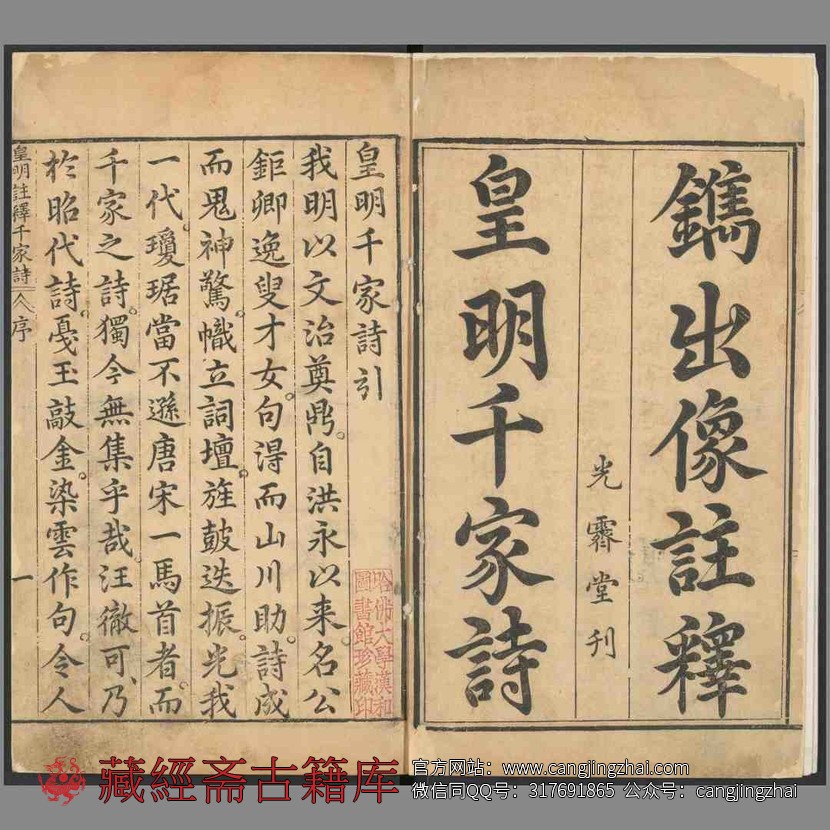 鐫出像註釋
光霽堂刊
皇明千家詩
皇明千家詩引
我明以文治奠鼎。自洪永以来。名公
鉅卿逸叟才女。句得而山川助。詩成
而鬼神驚。幟立詞壇。旌皷迭振。光我
一代。瓊琚當不遜唐宋一馬首者。而
千家之詩。獨今無集乎哉。汪徹可、乃
於昭代詩。戞玉敲金。染雲作句。令人
皇明註釋千家詩 序 一
哈佛大學漢和
圖書館珍藏印
藏經斋古籍库
官方网站：www.cangjingzhai.com
微信同QQ号：317691865 公众号：cangjingzhai